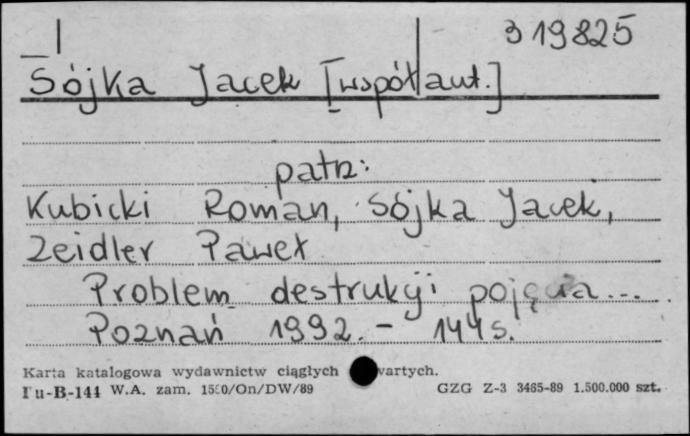 319825
Sójka Jacek [współaut.]
patrz:
Kubicki Roman, Sójka Jacek,
Zeidler Paweł
Problem destrukcji pojęcia...
Poznań 1992. - 144 s.
Karta katalogowa wydawnictw ciągłych
Pu-B-144 W.A. zam. /On/DW/89 GZG Z-3 3465-89 1.500.000 szt.